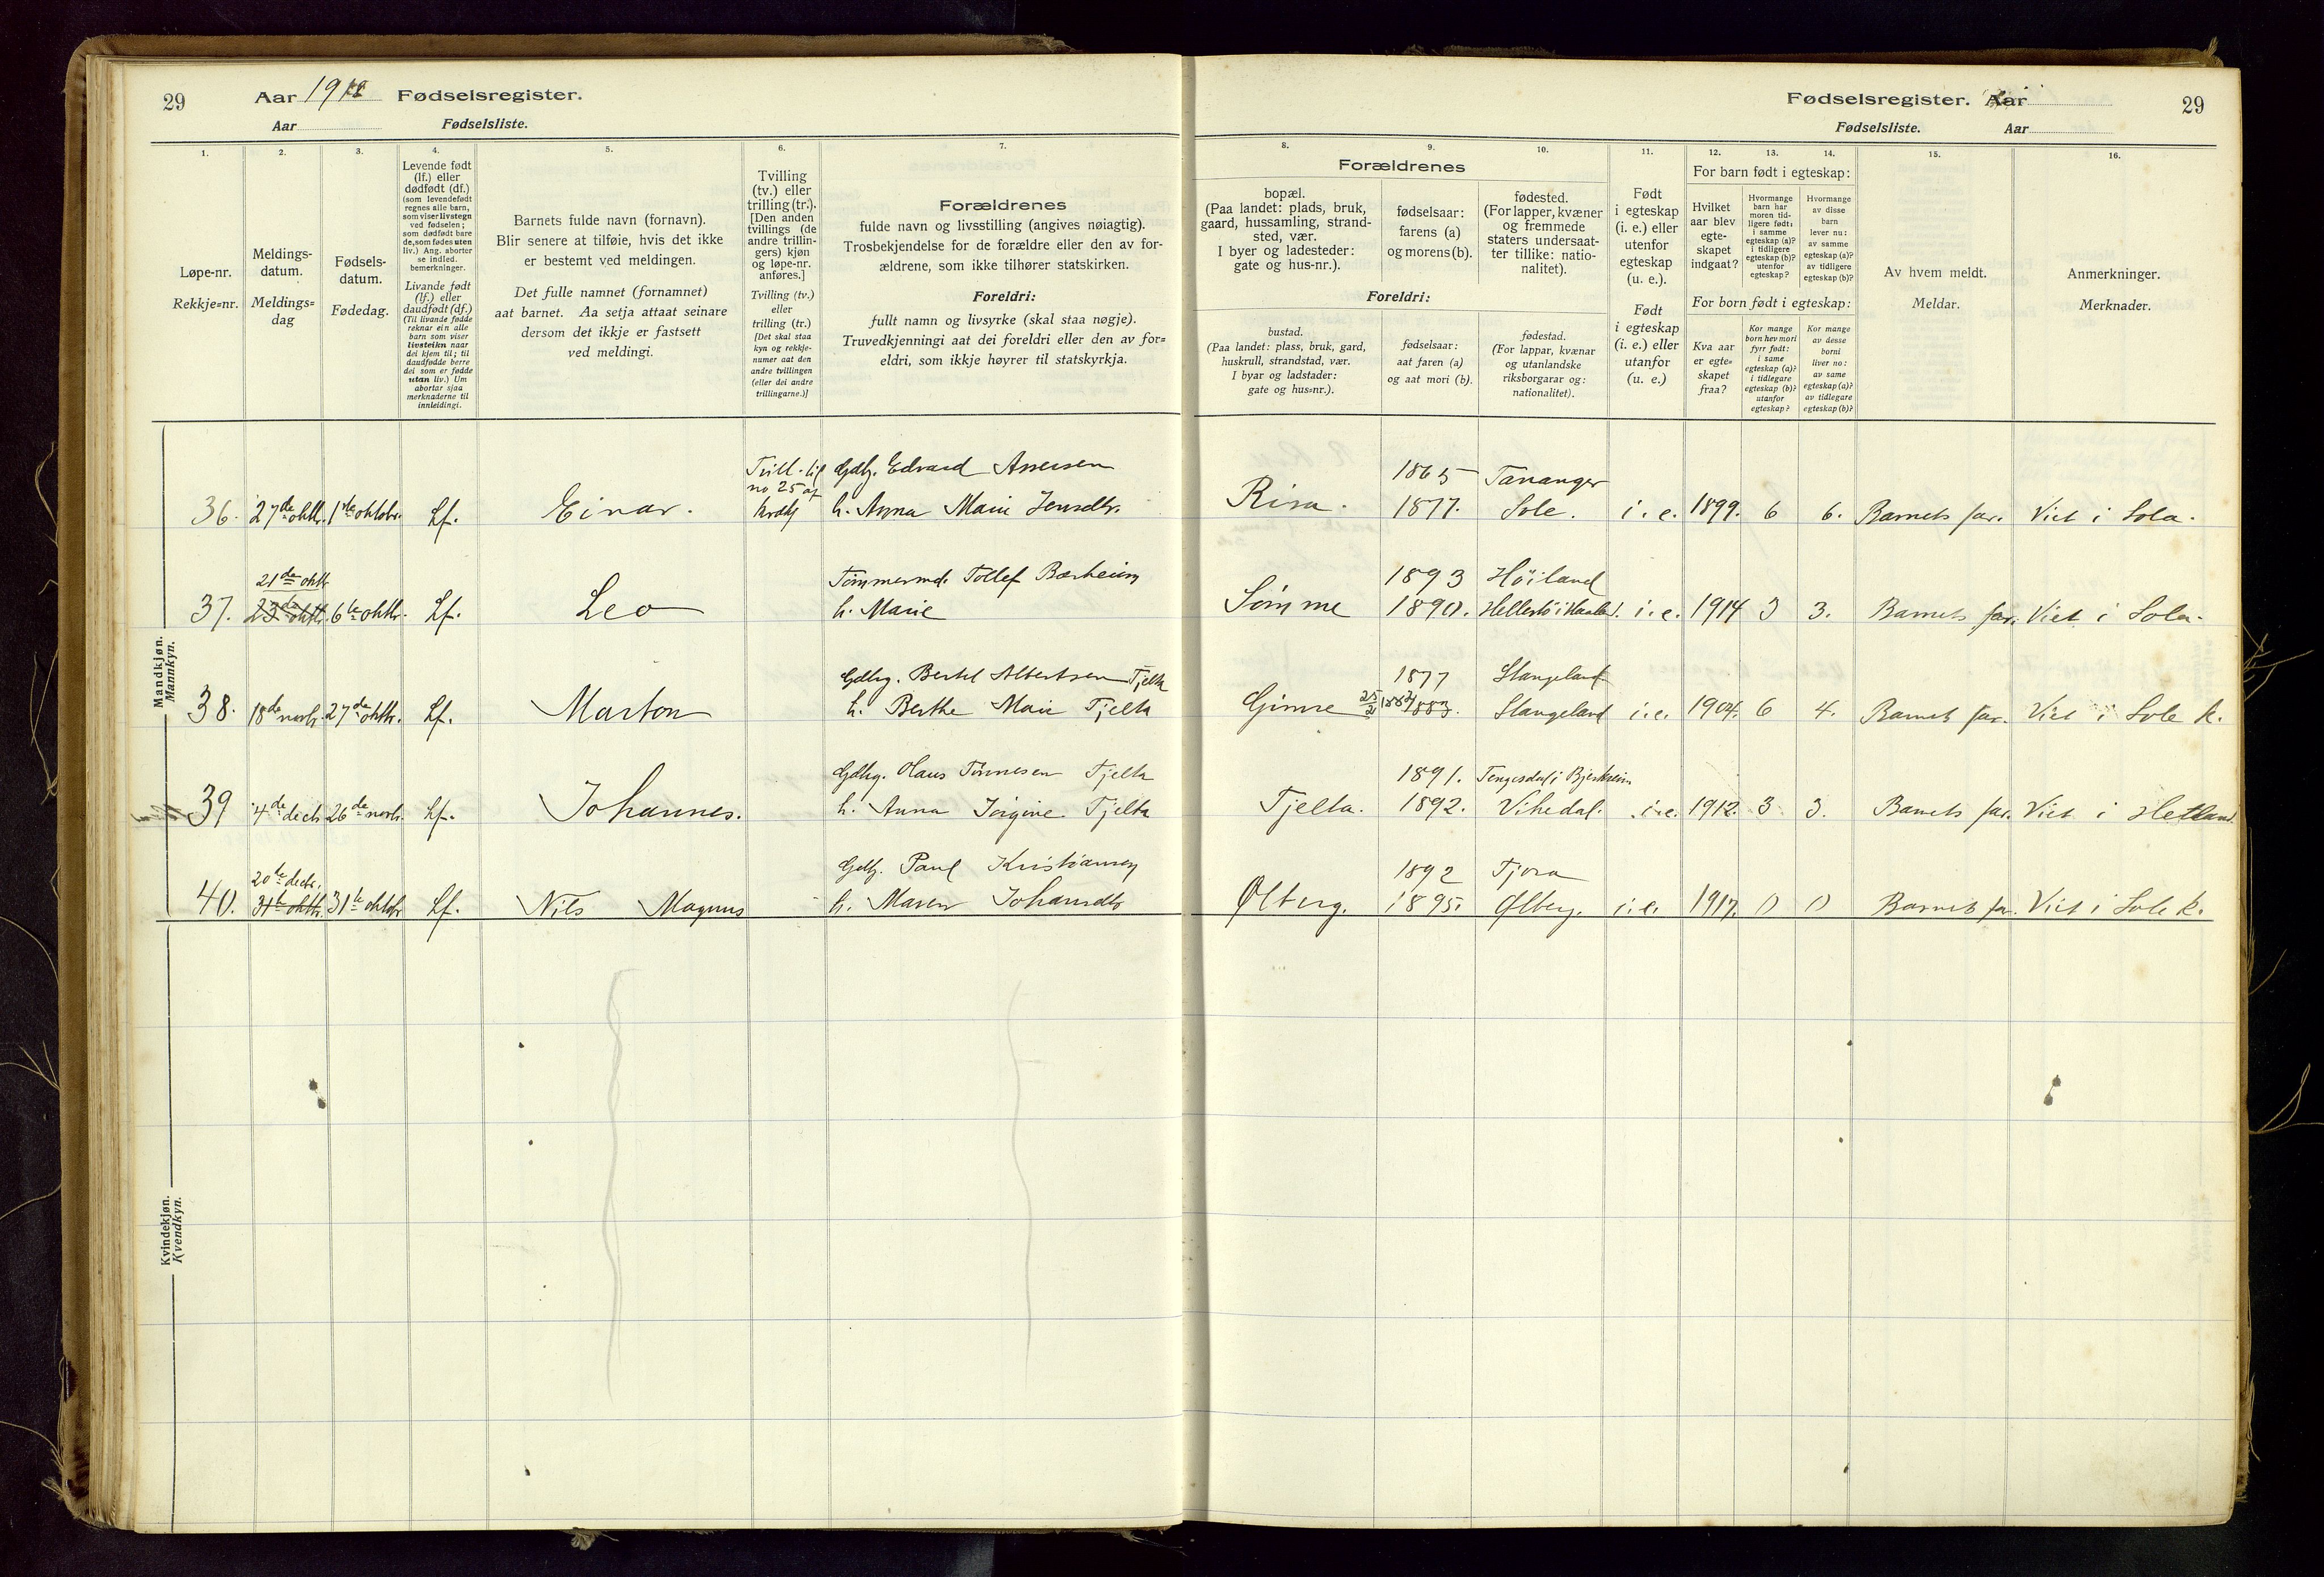 29
Aar 1918 Fødselsregister.
Aar Fødselsliste.
Fødselsregister. Aar
29
Fødselsliste. Aar
1. 2. 3. 4. 5. 6. 7. 8. 9. 10. 11. 12. 13. 14. 15. 16.
Løpe-nr.
Rekkje=nr.
Meldings-
datum.
Meldings=
dag
Fødsels-
datum.
Fødedag.
Levende født
(lf.) eller
dødfødt (df.)
(som levendefødt
regnes alle barn,
som viser livstegn
ved fødselen;
som dødfødt bare
de, som fødes uten
liv.) Ang. aborter
se indled.
bemerkninger.
Livande født
(lf.) eller
daudfødt (df.)
(Til livande fødde
reknar ein alle
barn som viser
livsteikn naar
dei kjem til; til
daudfødde berre
dei som er fødde
utan liv.) Um
abortar sjaa
merknaderne til
innleidingi.
Barnets fulde navn (fornavn).
Blir senere at tilføie, hvis det ikke
er bestemt ved meldingen.
Det fulle namnet (fornamnet)
aat barnet. Aa setja attaat seinare
dersom det ikkje er fastsett
ved meldingi.
Tvilling
(tv.) eller
trilling (tr.).
[Den anden
tvillings (de
andre trillin-
gers) kjøn
og løpe-nr.
anføres.]
Tvilling (tv.)
eller
trilling (tr.)
[Det skal staa
kyn og rekkje-
numer aat den
andre tvillingen
(eller dei andre
trillingarne.)]
Forældrenes
fulde navn og livsstilling (angives nøiagtig).
Trosbekjendelse for de forældre eller den av for-
ældrene, som ikke tilhører statskirken.
Foreldri:
fullt namn og livsyrke (skal staa nøgje).
Truvedkjenningi aat dei foreldri eller den av for=
eldri, som ikkje høyrer til statskyrkja.
Forældrenes
bopæl.
(Paa landet: plads, bruk,
gaard, hussamling, strand-
sted, vær.
I byer og ladesteder:
gate og hus-nr.).
fødselsaar:
farens (a)
og morens (b).
fødested.
(For lapper, kvæner
og fremmede
staters undersaat-
ter tillike: natio-
nalitet).
Foreldri:
bustad.
(Paa landet: plass, bruk, gard,
huskrull, strandstad, vær.
I byar og ladstader:
gate og hus=nr.).
fødselsaar:
aat faren (a)
og aat mori (b).
fødestad.
(For lappar, kvænar
og utanlandske
riksborgarar og:
nationalitet).
Født
i egteskap
(i. e.) eller
utenfor
egteskap
(u. e.).
Født
i egteskap
(i. e.) eller
utanfor
(u. e.)
For barn født i egteskap:
Hvilket
aar blev
egte-
skapet
indgaat?
Hvormange
barn har
moren tid-
ligere født:
i samme
egteskap (a)?
i tidligere
egteskap (b)?
utenfor
egteskap?
Hvormange
av disse
barn
lever nu:
av samme
egteskap (a)?
av tidligere
egteskap (b)?
For born født i egteskap:
Kva aar
er egte=
skapet
fraa?
Kor mange
born hev mori
fyrr født:
i same
egteskap (a)?
i tidlegare
egteskap (b)?
utanfor
egteskap?
Kor mange
av desse
borni
liver no:
av same
egteskap (a)?
av tidlegare
egteskap (b)?
Av hvem meldt.
Meldar.
Anmerkninger.
Merknader.
Mandkjøn.
Mannkyn.
36. 27de oktbr. 1ste oktobr. Lf. Einar. Tvill. til no 25 af kvdkj Gdbr. Edvard Assersen 1865 Tananger
h. Anna Marie Jensdtr. Risa. 1877. Sole. i. e. 1899. 6 6. Barnets far. Viet i Sola.
21de oktbr
37. 23de oktbr. 6te oktbr. Lf. Leo Tømmermd. Tollef Bærheim 1893 Høiland
h. Marie Sømme 1890. Hellestø i Haaland. i. e. 1914 3 3. Barnets far. Viet i Sola.
38. 18de novbr. 27de oktbr. Lf. Marton Gdbrg. Bertel Albertsen Tjelta 1877 Stangeland
h. Berthe Marie Tjelta Gimre 25/2 1882 1883. Stangeland i. e. 1904. 6 4. Barnets far. Viet i Sole k.
39 4de decbr 26de novbr. Lf. Johannes. Gdbrg. Olaus Tønnesen Tjelta 1891. Tengesdal i Bjerkreim
h. Anna Jørgine Tjelta Tjelta. 1892. Vikedal. i. e. 1912. 3 3. Barnets far. Viet i Hetland.
20de decbr.
40. 31te oktbr. 31te oktobr Lf. Nils Magnus Gdbr. Paul Kristiansen 1892 Tjora
h. Maren Johansdtr Ølberg. 1895. Ølberg. i. e. 1917. 0 0 Barnets far. Viet i Sole k.
Kvindekjøn.
Kvendkyn.